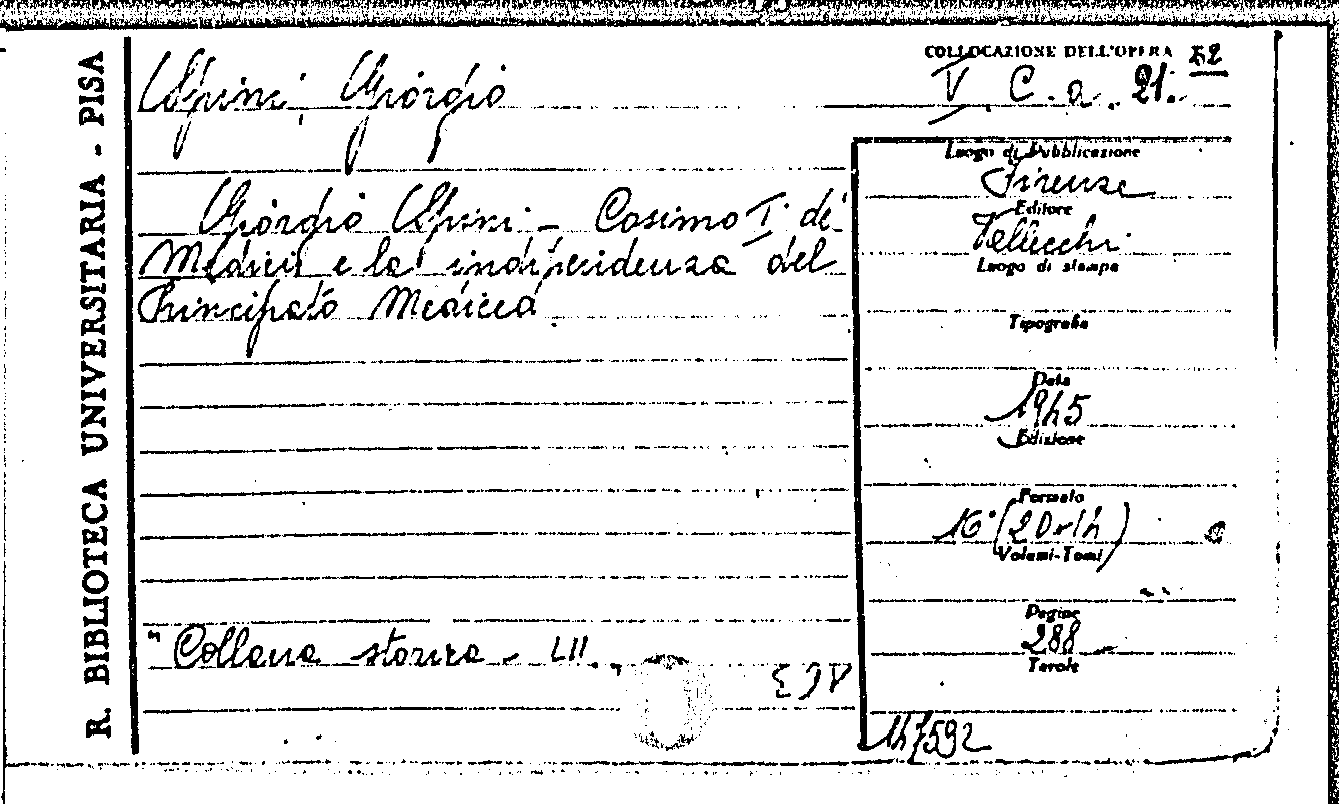 R. BIBLIOTECA UNIVERSITARIA - PISA
COLLOCAZIONE DELL'OPERA 52
Spini, Giorgio
V. C. a. 21.
Giorgio Spini - Cosimo I° de'
Medici e la indipendenza del
Principato Mediceo.
"Collana storica - LII."
Luogo di Pubblicazione
Firenze
Editore
Vallecchi
Luogo di stampa
Tipografia
Data
1945
Edizione
Formato
16° (20x14)
Volumi-Tomi
Pagine
288
Tavole
147592